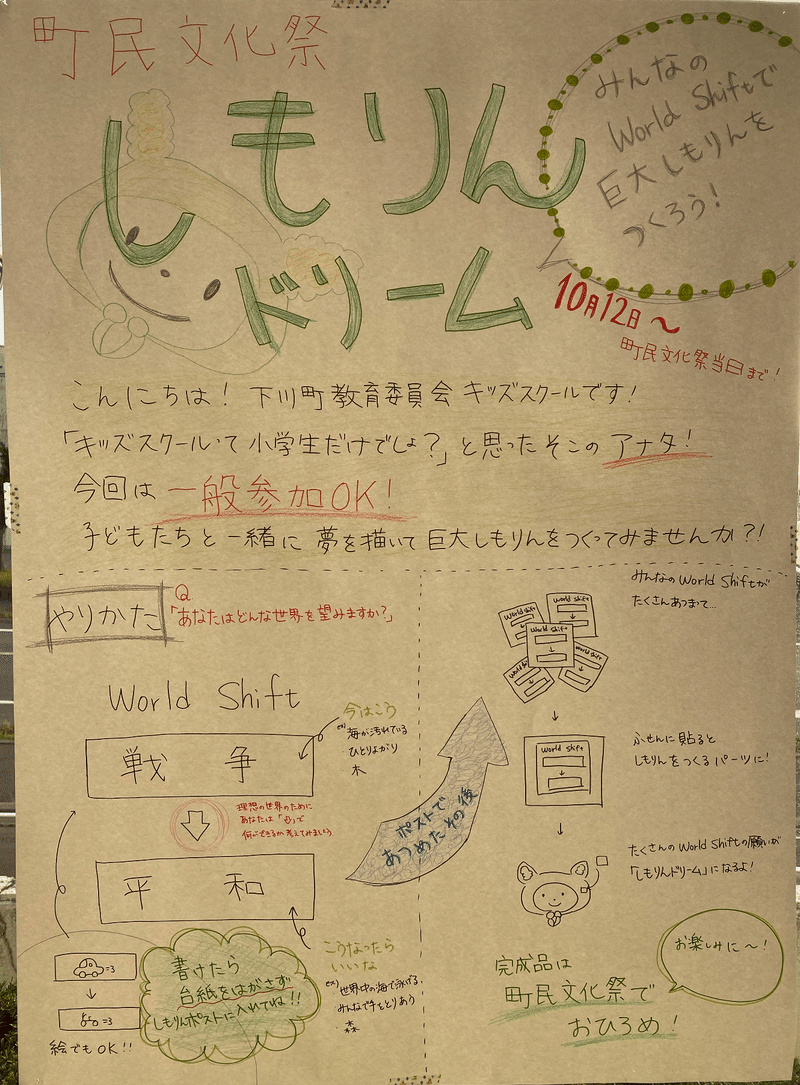 町民文化祭
しもりん
ドリーム
みんなの
World Shiftで
巨大しもりんを
つくろう!
10月12日〜
町民文化祭当日まで!
こんにちは! 下川町教育委員会 キッズスクールです!
「キッズスクールって小学生だけでしょ?」と思ったそこのアナタ!
今回は 一般参加OK!
子どもたちと一緒に 夢を描いて 巨大しもりんをつくってみませんか?!
やりかた
Q
「あなたはどんな世界を望みますか?」
World Shift
戦争
今はこう
ex) 海が汚れている
ひとりよがり
木
理想の世界のために
あなたは「心」で
何ができるか考えてみましょう
平和
こうなったら
いいな
ex) 世界中の海で泳げる
みんなで手をとりあう
森
絵でもOK!!
書けたら
台紙をはがさず
しもりんポストに入れてね!!
ポストで
あつめたその後
みんなのWorld Shiftが
たくさんあつまって…
World Shift
World Shift
World Shift
World Shift
World Shift
ふせんに貼ると
しもりんをつくるパーツに!
World Shift
たくさんのWorld Shiftの願いが
「しもりんドリーム」になるよ!
お楽しみに〜!
完成品は
町民文化祭で
おひろめ!